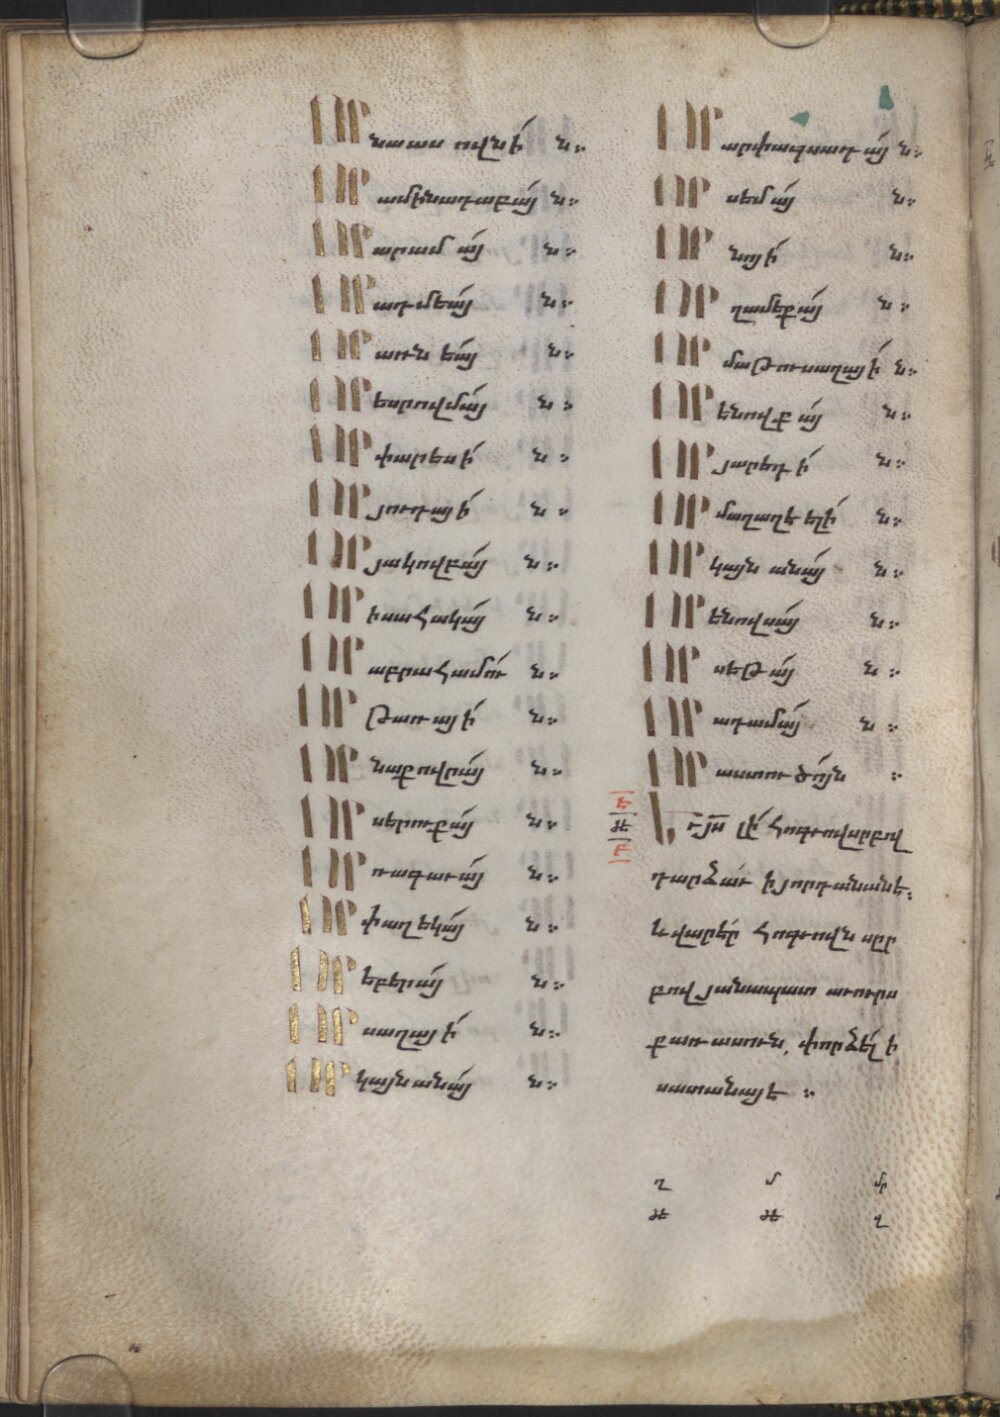 Որ նաասովնի ն։
Որ ամինադաբայ ն։
Որ արամայ ն։
Որ ադմեայ ն։
Որ առնեայ ն։
Որ եսրովմայ ն։
Որ փարեսի ն։
Որ յուդայի ն։
Որ յակովբայ ն։
Որ իսահակայ ն։
Որ աբրահամու ն։
Որ թառայի ն։
Որ նաքովրայ ն։
Որ սերուքայ ն։
Որ ռագաւայ ն։
Որ փաղեկայ ն։
Որ եբերայ ն։
Որ սաղայի ն։
Որ կայնանայ ն։
Որ արփաքսադայ ն։
Որ սեմայ ն։
Որ նոյի ն։
Որ ղամեքայ ն։
Որ մաթուսաղայի ն։
Որ ենովքայ ն։
Որ յարեդի ն։
Որ մաղաղէելի ն։
Որ կայնանայ ն։
Որ ենովսայ ն։
Որ սեթայ ն։
Որ ադամայ ն։
Որ աստուծոյն ։
Եւ յս լի հոգւովսրբով
դարձաւ ի յորդանանէ։
և վարէր հոգւովն սըր
բով յանապատ աւուրս
քառասուն. փորձել ի
սատանայէ ։
ղ մ մր
ժէ ժէ ղ